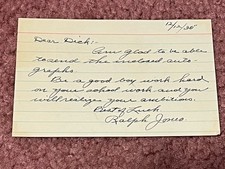 12/12/35
Dear Dick:-
Am glad to be able
to send the inclosed auto-
graphs.
Be a good boy work hard
on your school work and you
will realize your ambitions.
Best of Luck
Ralph Jones